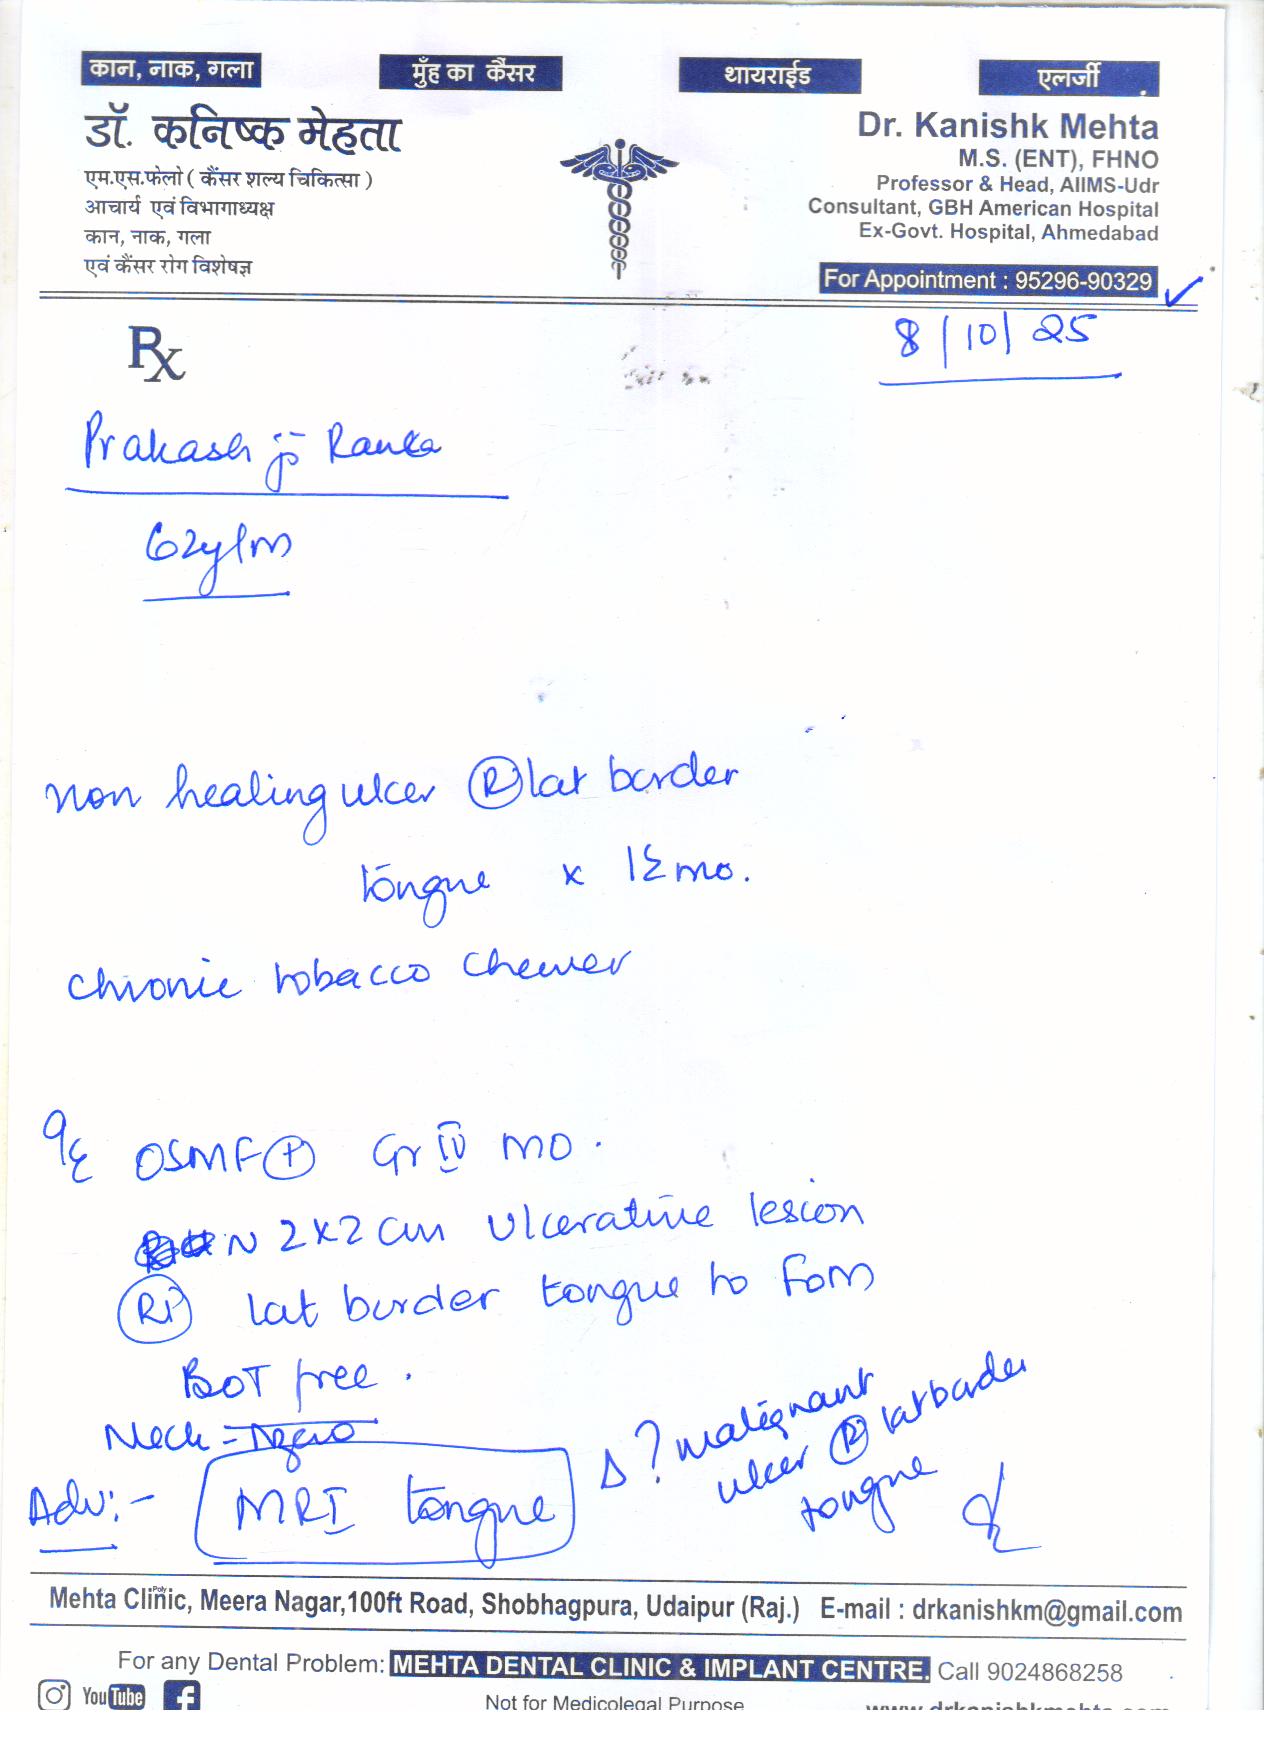 कान, नाक, गला
मुँह का कैंसर
थायराईड
एलर्जी
डॉ. कनिष्क मेहता
एम.एस.फेलो ( कैंसर शल्य चिकित्सा )
आचार्य एवं विभागाध्यक्ष
कान, नाक, गला
एवं कैंसर रोग विशेषज्ञ
Dr. Kanishk Mehta
M.S. (ENT), FHNO
Professor & Head, AIIMS-Udr
Consultant, GBH American Hospital
Ex-Govt. Hospital, Ahmedabad
For Appointment : 95296-90329
Rx
8/10/25
Prakash ji Ranka
62y/m
non healing ulcer (R) lat border
tongue x
chronic tobacco chewer
OSMF (+) Gr IV MO.
2x2 cm ulcerative lesion
(Rt) lat border tongue to FOM
BOT free.
Neck =
Adv:- MRI tongue
Δ ? malignant
ulcer (R) lat border
tongue
Mehta Poly Clinic, Meera Nagar,100ft Road, Shobhagpura, Udaipur (Raj.) E-mail : drkanishkm@gmail.com
For any Dental Problem: MEHTA DENTAL CLINIC & IMPLANT CENTRE. Call 9024868258
YouTube
Not for Medicolegal Purpose
www.drkanishkmehta.com